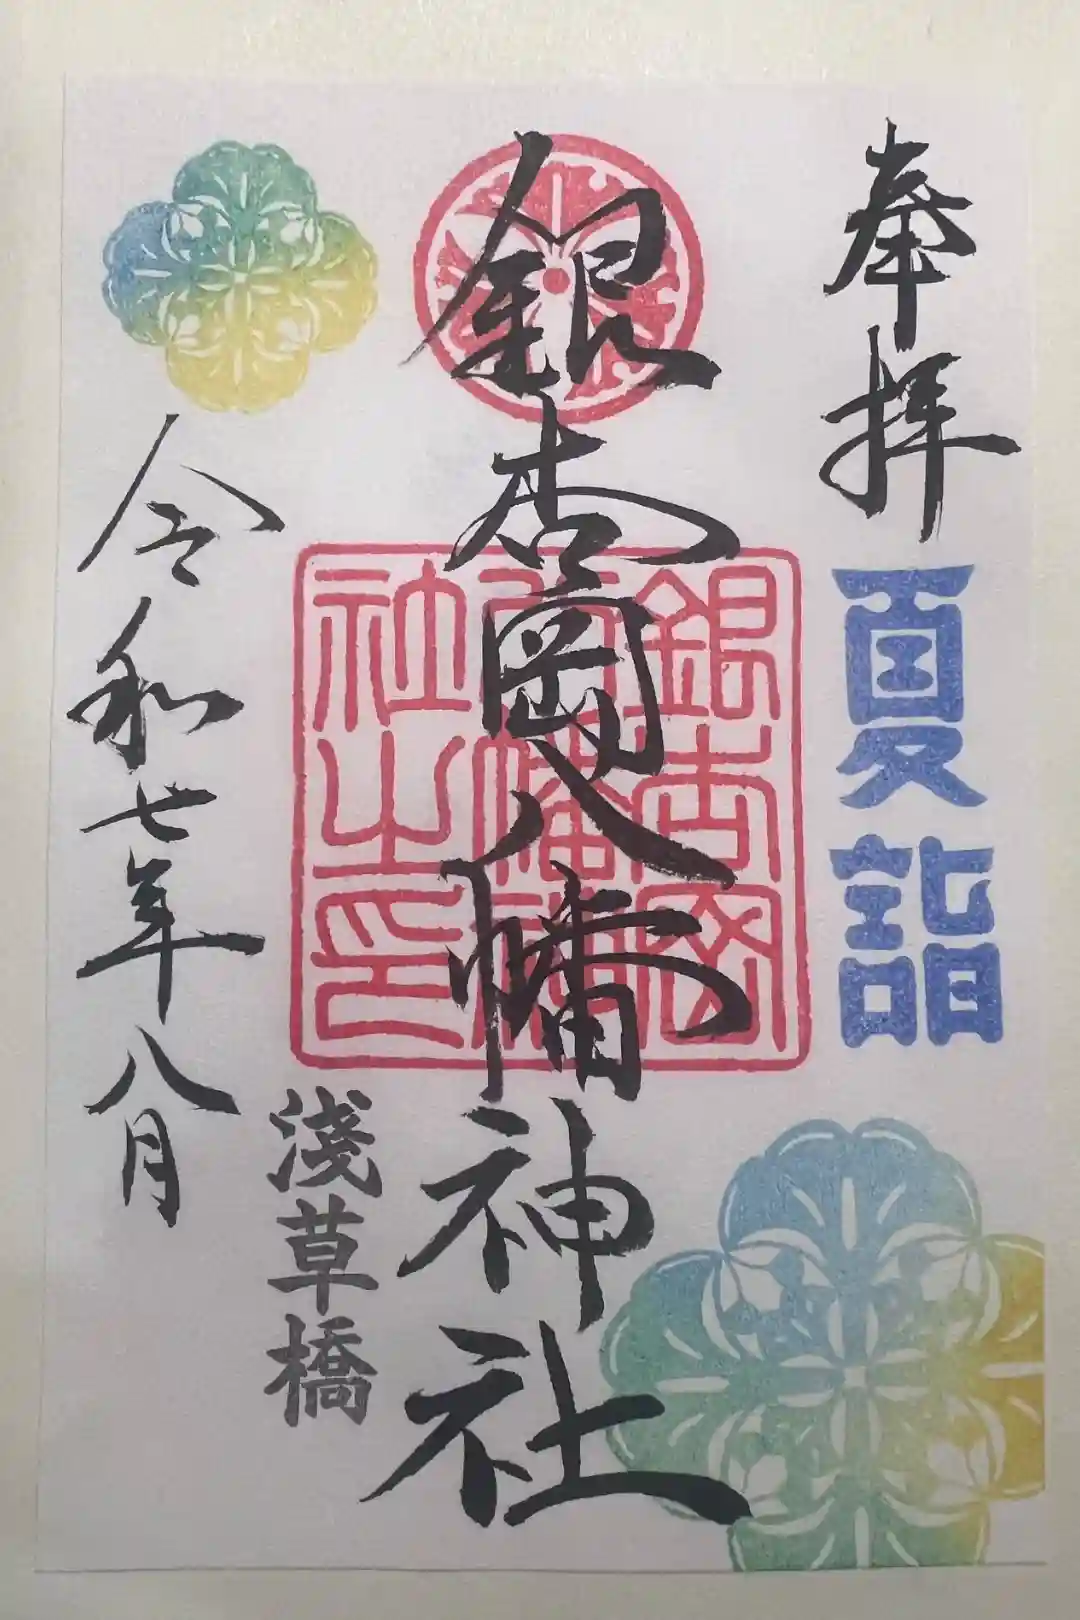 奉拝
夏詣
銀杏岡八幡神社
銀杏岡
八幡神
社之印
淺草橋
令和七年八月